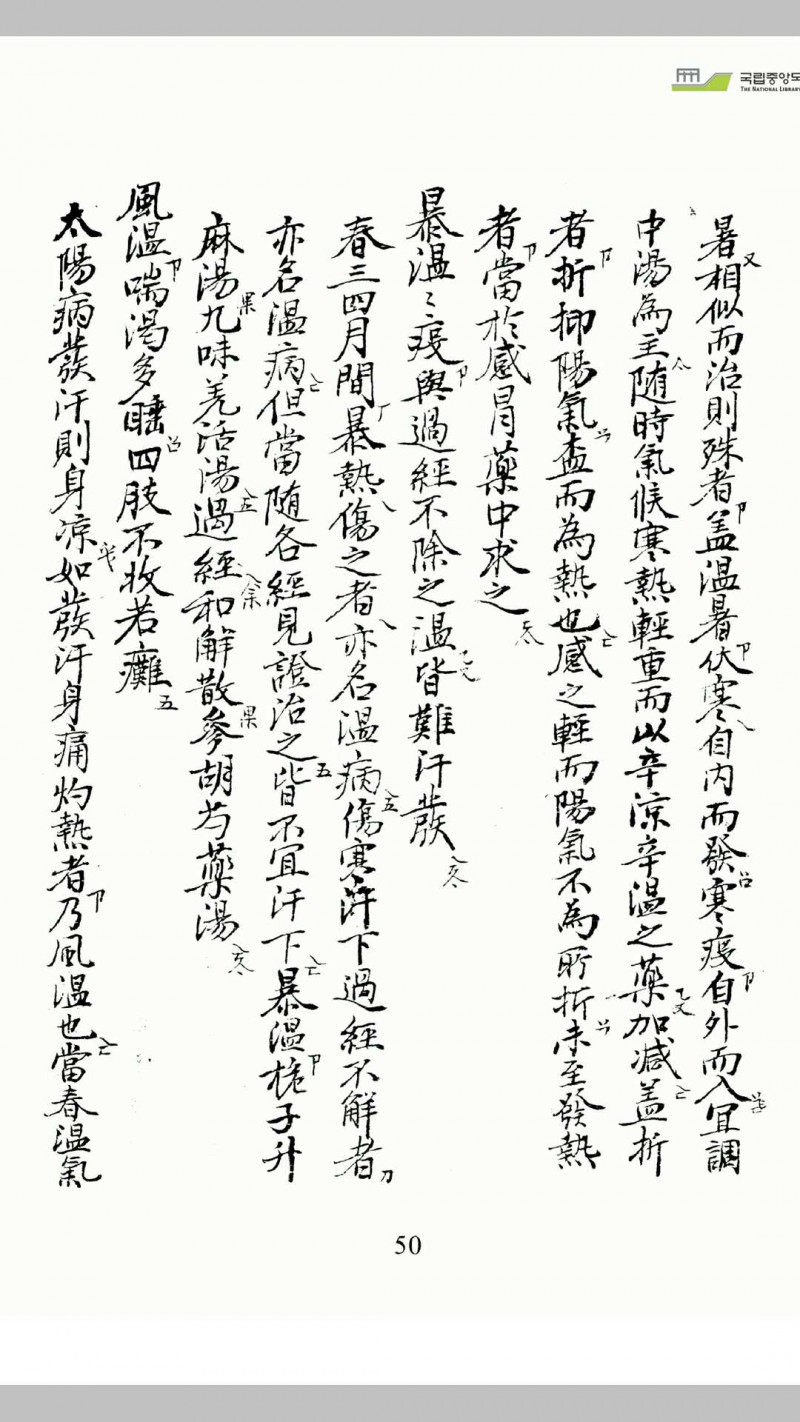 국립중앙도
THE NATIONAL LIBRARY
暑相似而治則殊者盖温暑伏寒自内而發寒疫自外而入宜調
中湯為主随時氣候寒熱輕重而以辛凉辛温之藥加减盖折
者折抑陽氣盍而為熱也感之輕而陽氣不為所折未至發熱
者當於感冐藥中求之
暴温〻疫與過經不除之温皆難汗發
春三四月間暴熱傷之者亦名温病傷寒汗下過經不解者
亦名温病但當随各經見證治之皆不冝汗下暴温梔子升
麻湯九味羌活湯過經和解散參胡芍藥湯
風温喘渴多睡四肢不收若癱
太陽病發汗則身凉如發汗身痛灼熱者乃風温也當春温氣
50